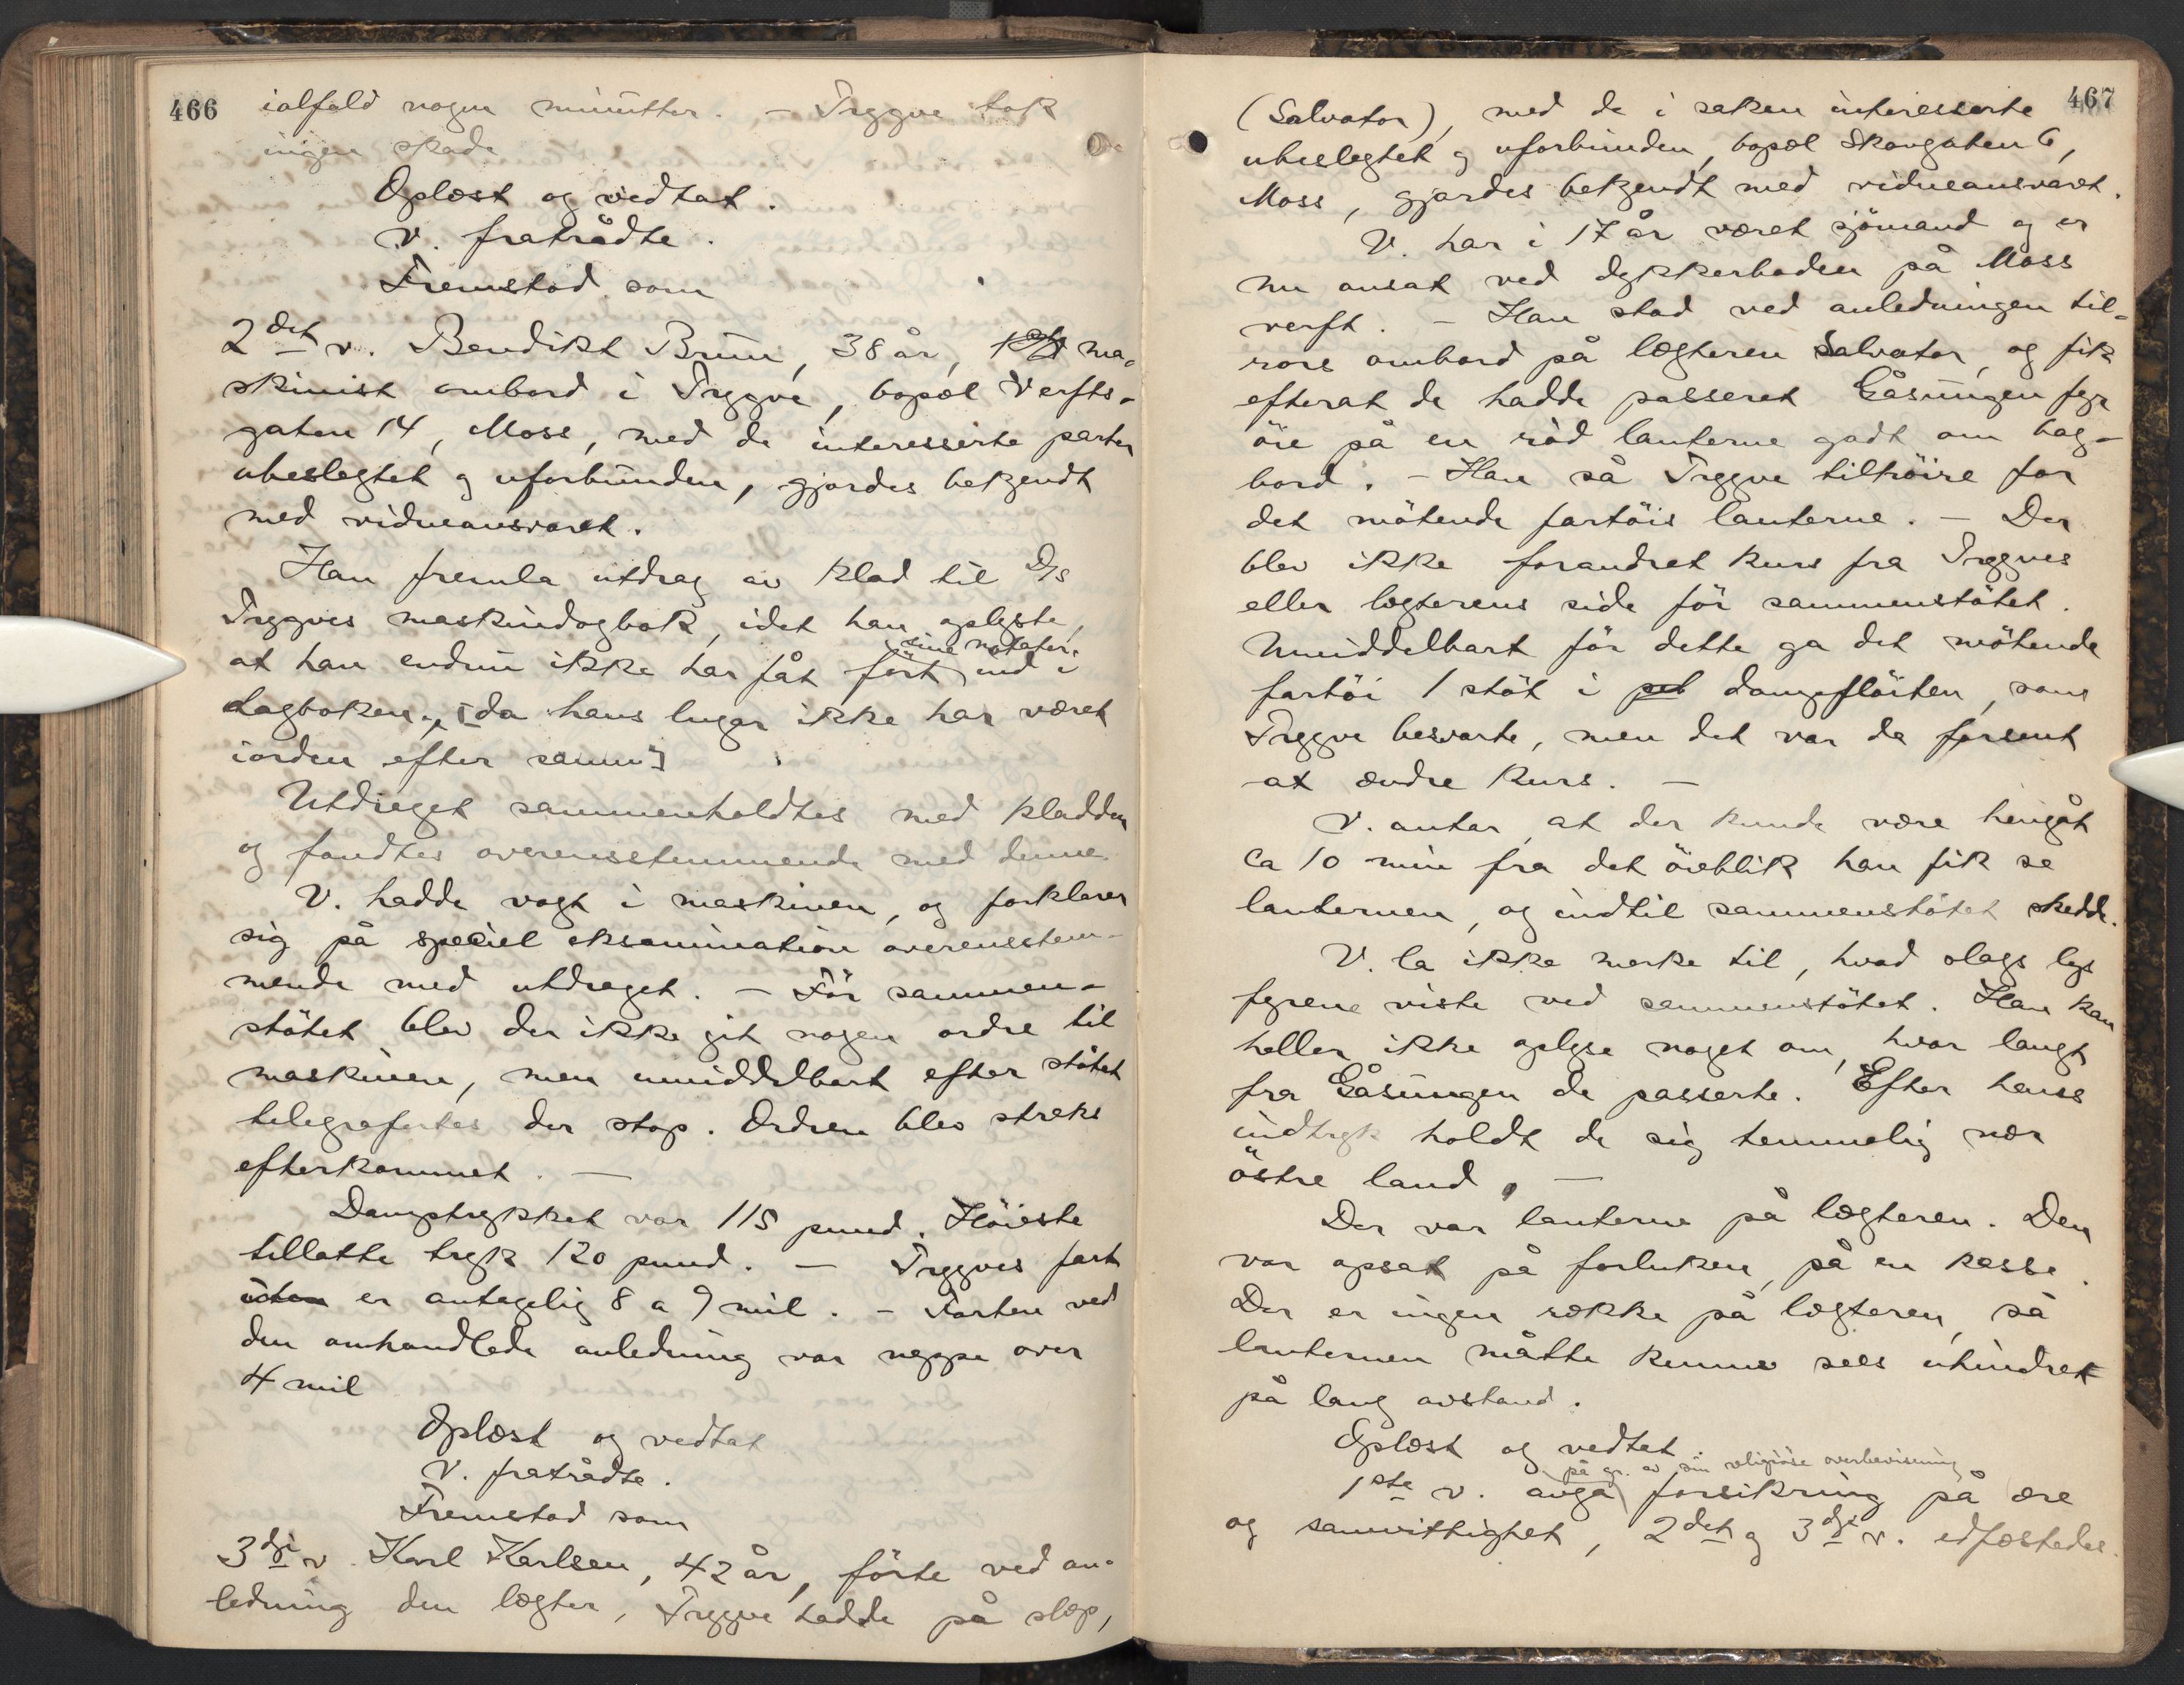 466
ialfald nogen minutter. — Tryggve tok
ingen skade
Oplæst og vedtat.
V. fratrådte.
Fremstod som
2det v. Bendikt Bruu, 38 år, ma-
skinist ombord i Tryggve, bopæl Verfts-
gaten 14, Moss, med de interesserte parter
ubeslegtet og uforbunden, gjordes bekjendt
med vidneansvaret.
Han fremla utdrag av klad til D/s
Tryggves maskindagbok, idet han oplyste,
at han endnu ikke har fåt ført sine notater ind i
dagboken., [da hans lugar ikke har været
iorden efter samm.]
Utdraget sammenholdtes med kladden
og fandtes overensstemmende med denne.
V. hadde vagt i maskinen, og forklarer
sig på speciel eksamination overensstem-
mende med utdraget. — Før sammen-
støtet blev der ikke git nogen ordre til
maskinen, men umiddelbart efter støtet
telegrafertes der stop. Ordren blev straks
efterkommet. —
Damptrykket var 115 pund. Høieste
tillatte tryk 120 pund. — Tryggves fart
er antagelig 8 a 9 mil. — Farten ved
den omhandlede anledning var neppe over
4 mil
Oplæst og vedtat
V. fratrådte.
Fremstod som
3dje v. Karl Karlsen, 42 år, førte ved an-
ledning den lægter, Tryggve hadde på slæp,
467
(Salvator), med de i saken interesserte
ubeslegtet og uforbunden, bopæl Skovgaten 6,
Moss, gjordes bekjendt med vidneansvaret.
V. har i 17 år været sjømand og er
nu ansat ved dykkerbaden på Moss
verft. — Han stod ved anledningen til-
rors ombord på lægteren Salvator, og fik
efterat de hadde passeret Gåsungen fyr
øie på en rød lanterne godt om bag-
bord. — Han så Tryggve tilhøire for
det møtende fartøis lanterne. — Der
blev ikke forandret kurs fra Tryggves
eller lægterens side før sammenstøtet.
Umiddelbart før dette ga det møtende
fartøi 1 støt i dampfløiten, som
Tryggve besvarte, men det var da forsent
at ændre kurs. —
V. antar, at der kunde være hengåt
ca 10 min fra det øieblik han fik se
lanternen, og indtil sammenstøtet skedde.
V. la ikke merke til, hvad slags lys
fyrene viste ved sammenstøtet. Han kan
heller ikke oplyse noget om, hvor langt
fra Gåsungen de passerte. Efter hans
indtryk holdt de sig temmelig nær
østre land. —
Der var lanterne på lægteren. Den
var opsat på forluken, på en kasse.
Der er ingen række på lægteren, så
lanternen måtte kunne sees uhindret
på lang avstand.
Oplæst og vedtat
1ste v. avga på gr. av sin religiøse overbevisning forsikring på ære
og samvittighet, 2det og 3dje v. edfæstedes.